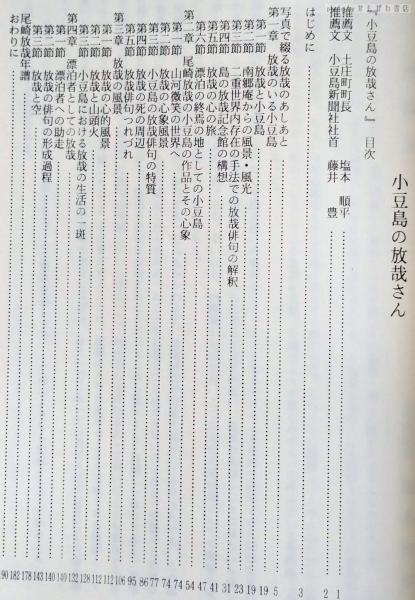 小豆島の放哉さん
『小豆島の放哉さん』 目次
推薦文 土庄町町長 塩本 順平 1
推薦文 小豆島新聞社社首 藤井 豊 2
はじめに 3
写真で綴る放哉のあしあと 5
第一章 放哉のいる小豆島 19
第一節 放哉と小豆島 19
第二節 南郷庵からの風景・風光 23
第三節 二重世界内存在の手法での放哉俳句の解釈 31
第四節 島の放哉記念館の構想 41
第五節 放哉の心の旅 47
第六節 漂泊の終焉の地としての小豆島 54
第二章 尾崎放哉の小豆島の作品とその心象 74
第一節 山河微笑の世界へ 74
第二節 放哉の心象風景 77
第三節 小豆島の放哉俳句の特質 86
第四節 放哉の死の周辺 95
第五節 放哉俳句つれづれ 106
第三章 放哉の風景 112
第一節 放哉の心的風景 112
第二節 放哉と山頭火 128
第三節 小豆島における放哉の生活の一斑 132
第四章 漂泊者としての放哉 140
第一節 漂泊者への助走 140
第二節 放哉の俳句の形成過程 143
第三節 放哉と空 178
尾崎放哉年譜 182
おわりに 190